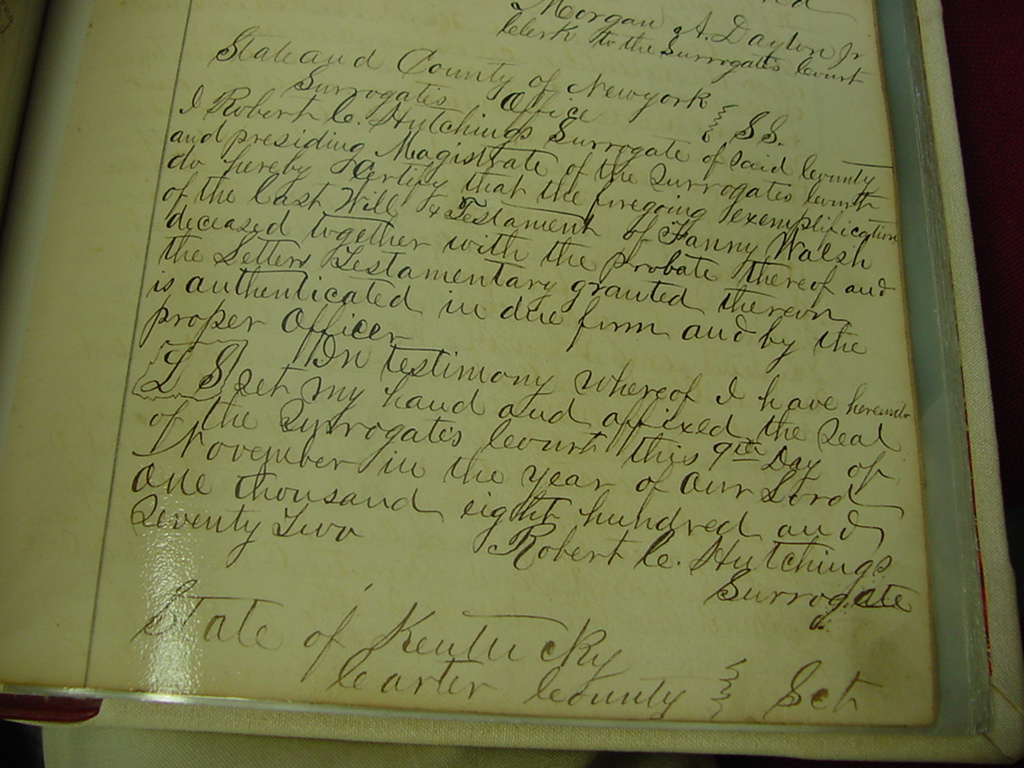 Morgan A. Dayton Jr
Clerk to the Surrogates Court
State and County of New York } SS.
Surrogates Office
I Robert C. Hutchings Surrogate of said County
and presiding Magistrate of the Surrogates Court
do hereby Certify that the foregoing exemplification
of the Last Will & Testament of Fanny Walsh
deceased together with the probate thereof and
the Letters Testamentary granted thereon
is authenticated in due form and by the
proper officer
In testimony whereof I have hereunto
L S set my hand and affixed the Seal
of the Surrogates Court this 9th day of
November in the year of our Lord
one thousand eight hundred and
Seventy Two
Robert C. Hutchings
Surrogate
State of Kentucky
Carter County } Sct